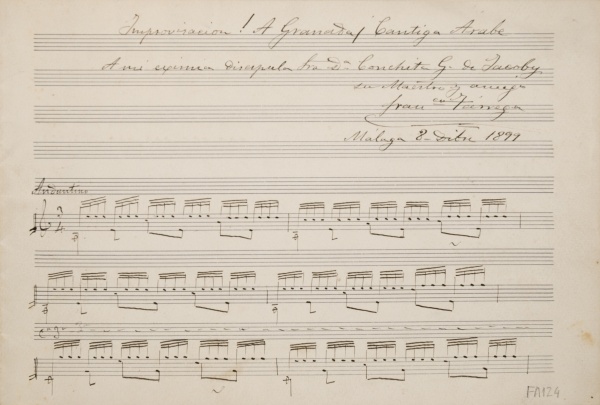 Improvisación! A Granada! Cantiga Arabe
A mi eximia discipula Sra Da Conchita G. de Jacoby
su Maestro y amigo
Francco Tárrega
Málaga 8 Dibre 1899
Andantino
3
4
FA124